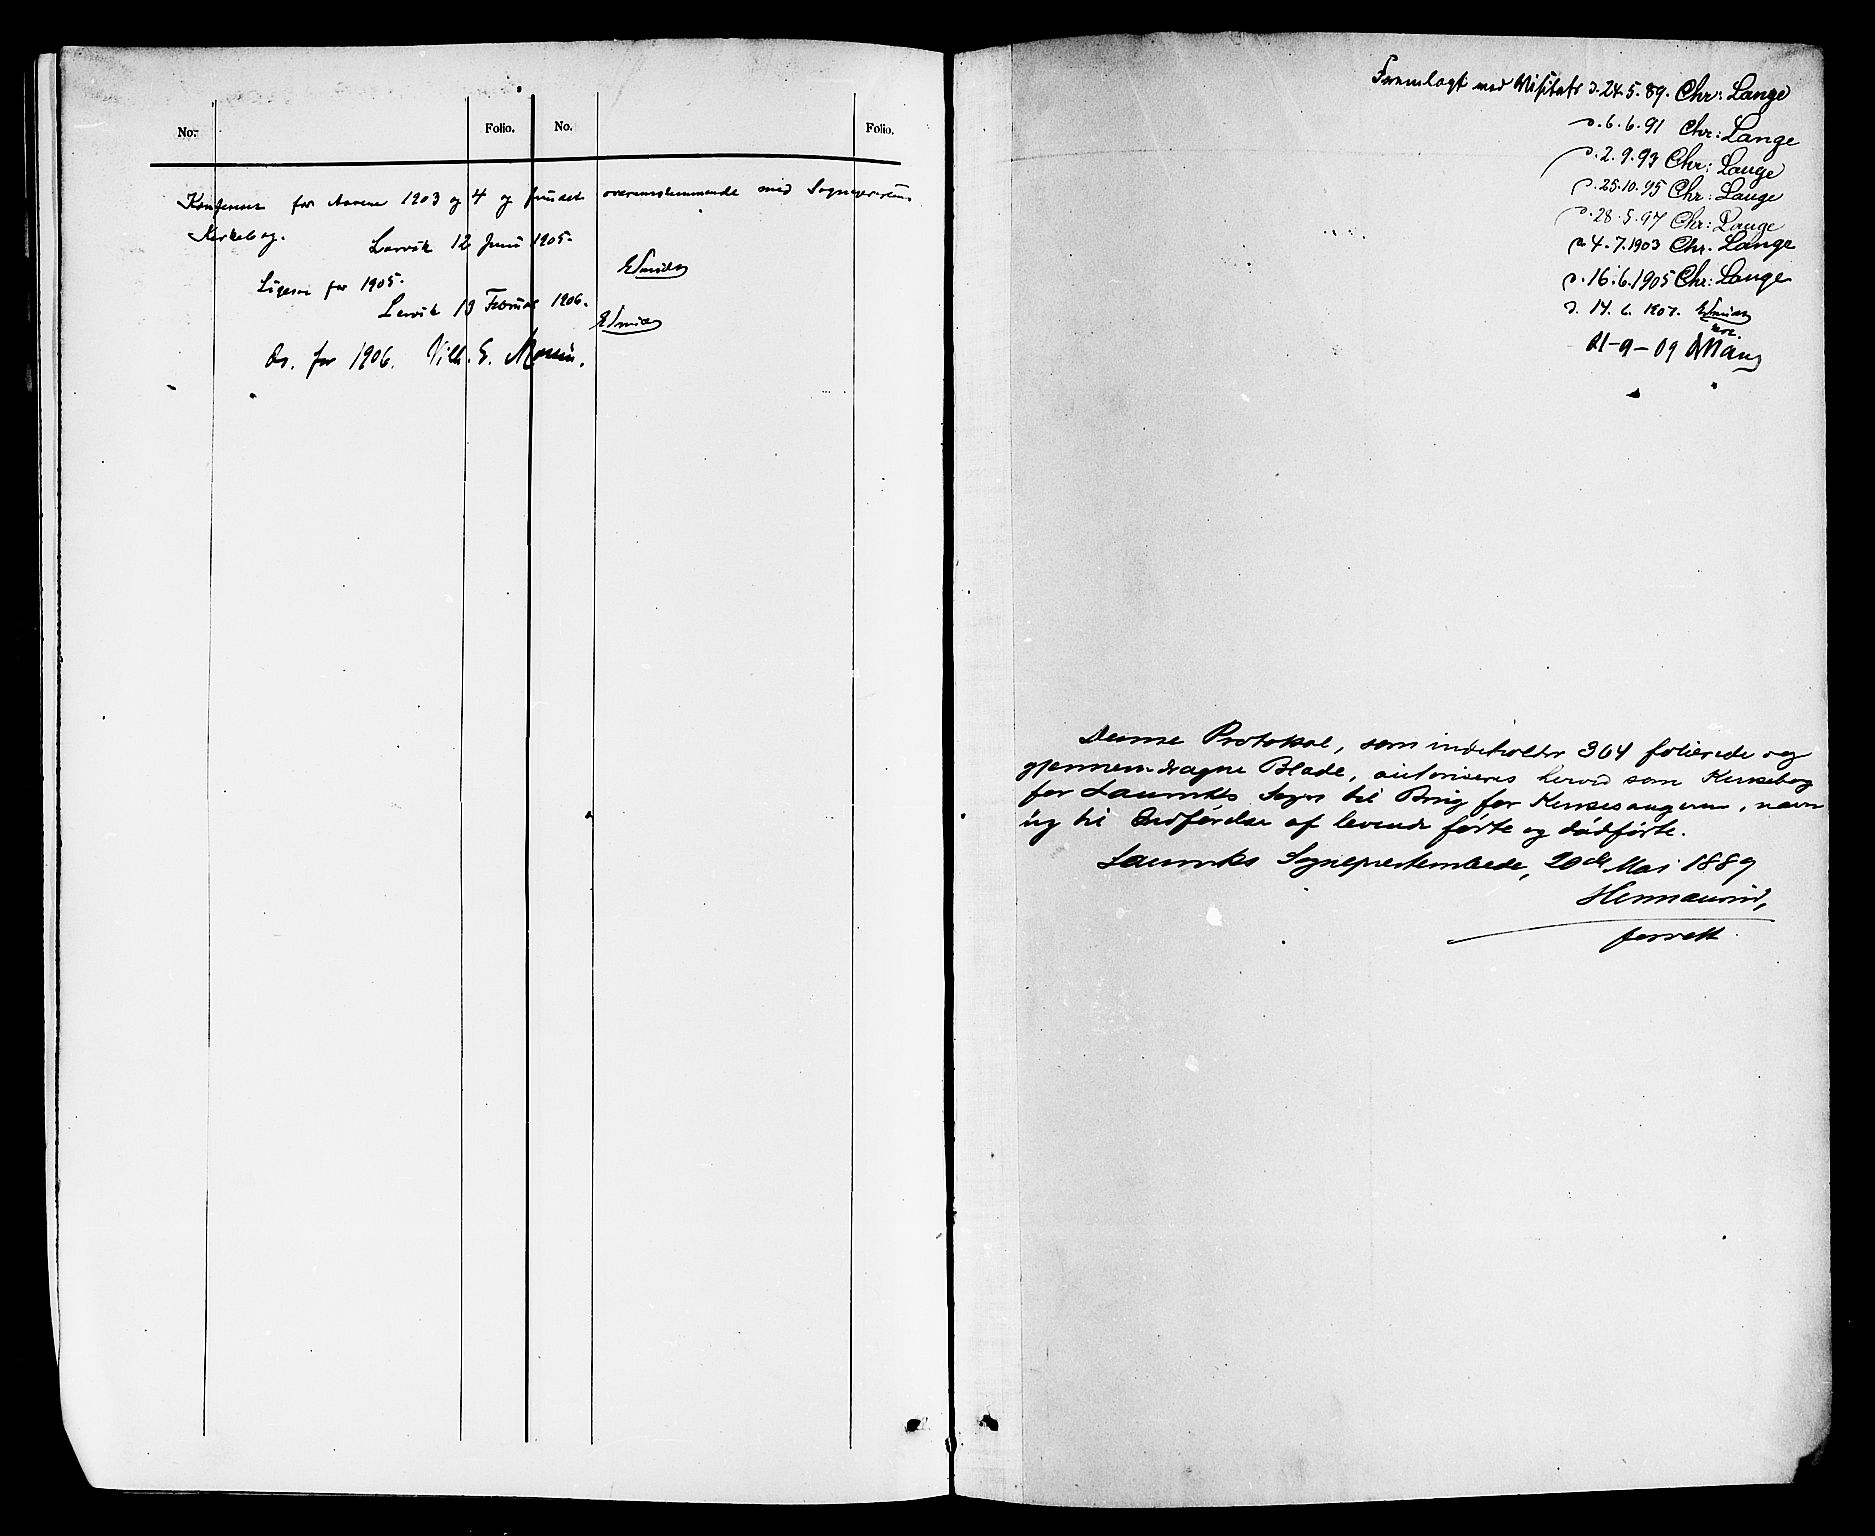 No.
Folio.
No.
Folio.
Konfereret for Aarene 1903 og 4 og fundet overensstemmende med Sogneprestens
Kirkebog.
Larvik 12 Juni 1905.
ESmith
Ligesaa for 1905.
Larvik 19 Februar 1906.
ESmith
Do. for 1906. Vilh. E.
Fremlagt ved Visitats d. 24.5.89. Chr: Lange
d. 6.6.91 Chr: Lange
d. 2.9.93 Chr: Lange
d. 25.10.95 Chr: Lange
d. 28.5.97 Chr: Lange
d 4.7.1903 Chr. Lange
d. 16.6.1905 Chr: Lange
d. 14. 6. 1907. ESmith
21-9-09
Denne Protokol, som indeholder 304 folierede og
gjennemdragne Blade, autoriseres herved som Kirkebog
for Laurviks Sogn til Brug for Kirkesangeren, navn
lig til Indførelse af levende fødte og dødfødte.
Laurviks Sogneprestembede, 20de Mai 1889